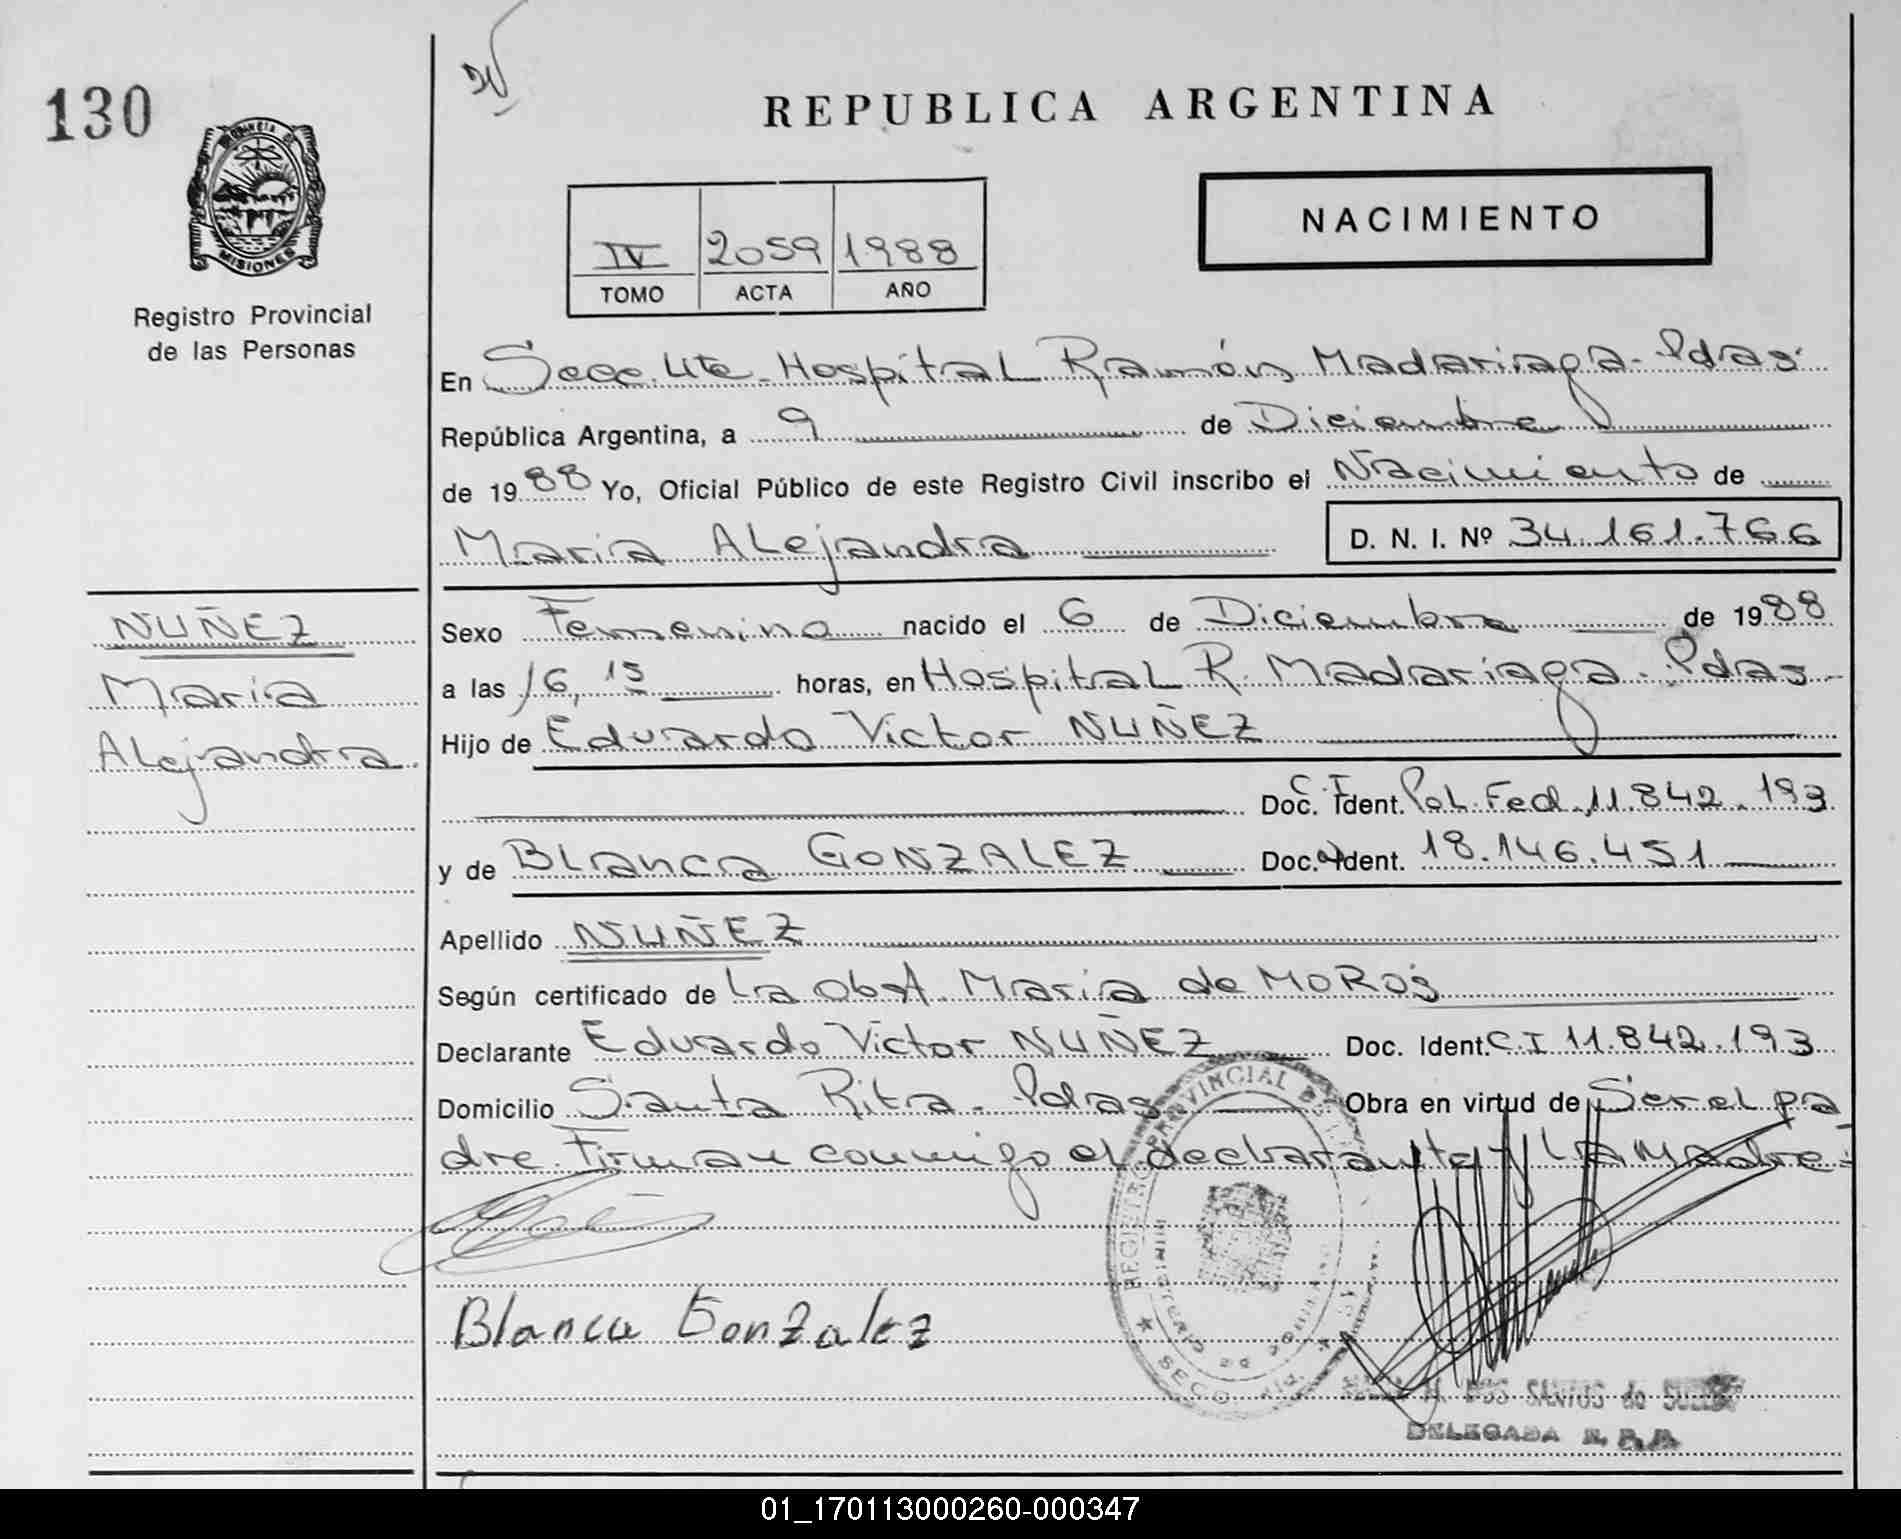 130
REPUBLICA ARGENTINA
PROVINCIA DE
MISIONES
Registro Provincial
de las Personas
IV 2059 1988
TOMO ACTA AÑO
NACIMIENTO
En Secc. 4ta. Hospital Ramón Madariaga - Pdas
República Argentina, a 9 de Diciembre
de 1988 Yo, Oficial Público de este Registro Civil inscribo el Nacimiento de
Maria Alejandra D. N. I. Nº 34.161.766
NUÑEZ
Maria
Alejandra
Sexo Femenino nacido el 6 de Diciembre de 1988
a las 16,15 horas, en Hospital R. Madariaga - Pdas
Hijo de Eduardo Victor NUÑEZ
Doc. Ident. C.I. Pol. Fed. 11.842.193
y de Blanca GONZALEZ Doc. Ident. 18.146.451
Apellido NUÑEZ
Según certificado de La Obst. Maria de MOROS
Declarante Eduardo Victor NUÑEZ Doc. Ident. C.I 11.842.193
Domicilio Santa Rita - Pdas Obra en virtud de Ser el pa
dre. Firman conmigo el declarante y la Madre
Blanca Gonzalez
REGISTRO PROVINCIAL
SECC
DOS SANTOS de
DELEGADA
01_170113000260-000347